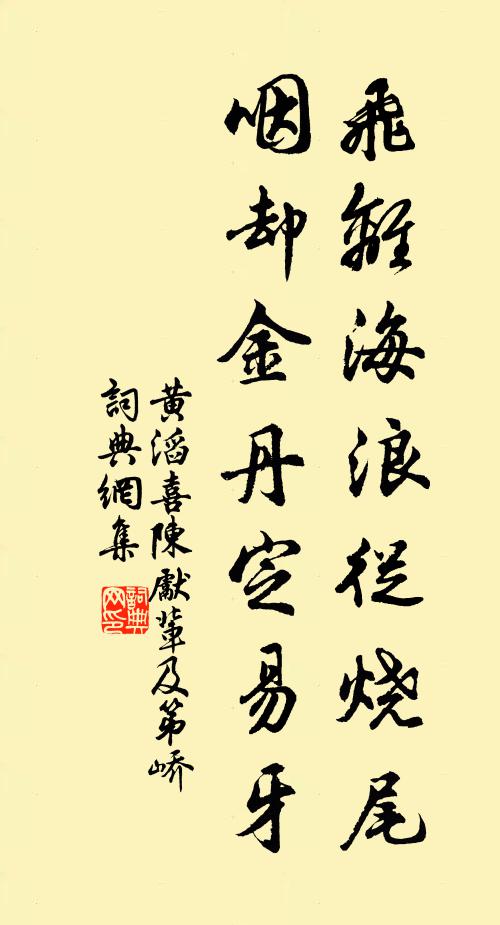 飛離海浪從燒尾
咽却金丹定易牙
黃滔喜陳獻輩及第嶠
詞典網集
詞典
网印